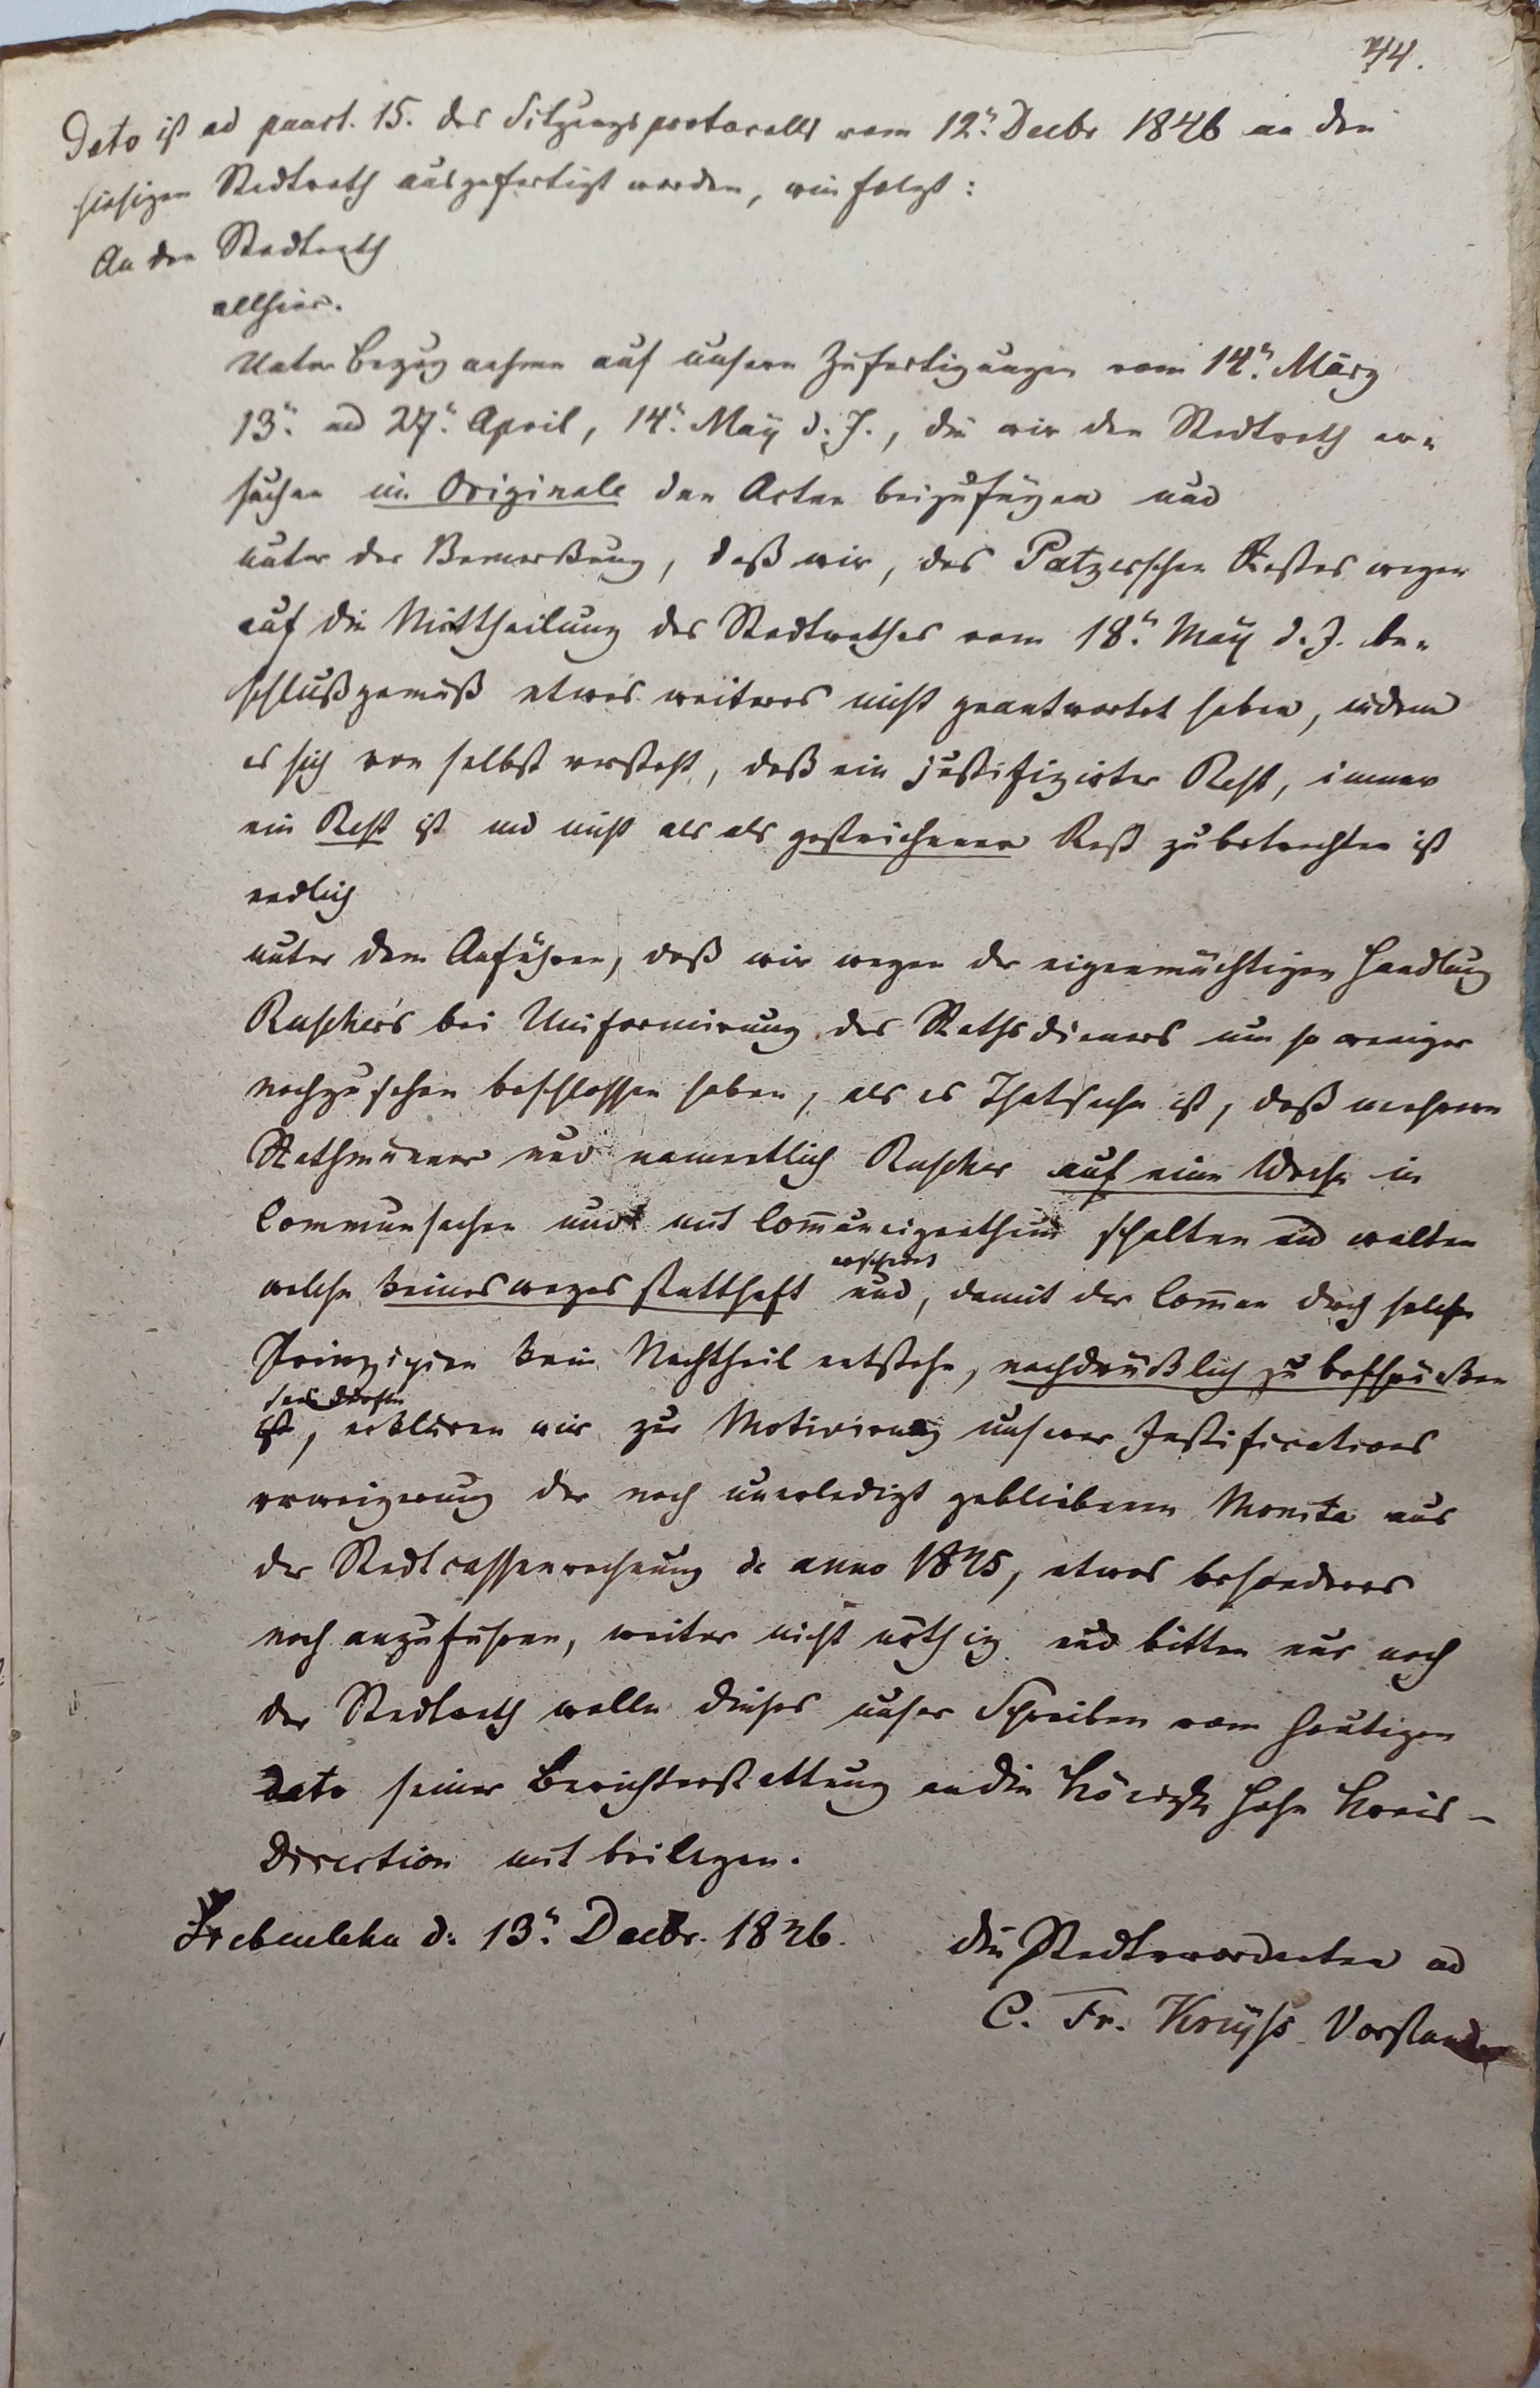 44.
Dato ist ad punct. 15. des Sitzungsprotocolls vom 12ⁿ. Decbr 1846 an den
hiesigen Stadtrath ausgefertigt worden, wie folgt:
An den Stadtrath
allhier.
Unter Bezugnahme auf unsere Zufertigungen vom 14ⁿ. März
13ⁿ. und 27ⁿ. April, 14ⁿ. Maÿ d. J., die wir den Stadtrath er-
suchen im Originale den Acten beizufügen und
unter der Bemerkung, daß wir, des Patzerschen Restes wegen
auf die Mittheilung des Stadtrathes vom 18ⁿ. Maÿ d. J. be-
schlußgemäß etwas weiteres nicht geantwortet haben, indem
es sich von selbst versteht, daß ein justifizirter Rest, immer
ein Rest ist und nicht als als gestrichener Rest zu betrachten ist
endlich
unter dem Anführen, daß wir wegen der eigenmächtigen Handlung
Rascher's bei Uniformirung des Rathsdieners um so weniger
nachzusehen beschlossen haben, als es Thatsache ist, daß mehrere
Rathmänner und namentlich Rascher auf eine Weise in
Communsachen und mit Communeigenthum schalten und walten
welche keineswegs statthaft erscheint und, damit der Commun durch solche
Prinzipien kein Nachtheil entstehe, nachdrücklich zu
ist, erklären wir zur Motivirung unserer Justifications
verweigerung der noch unerledigt gebliebenen Monita aus
der Stadtcassenrechnung de anno 1845, etwas besonderes
noch anzuführen, weiter nicht nöthig und bitten nur noch
der Stadtrath wolle dieses unser Schreiben vom heutigen
Dato seiner Berichterstattung an die Königl. hohe Kreis-
Direction mit beilegen.
d. 13ⁿ. Decbr. 1846. die Stadtverordneten
C. Fr. Vorstand